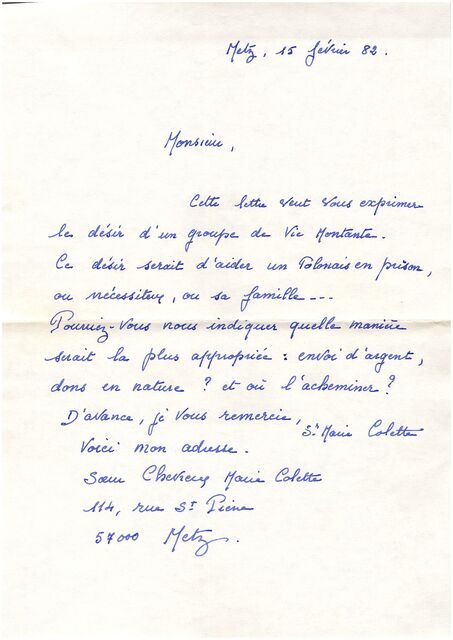 Metz, 15 février 82.
Monsieur,
Cette lettre veut vous exprimer
le désir d'un groupe de Vie Montante.
Ce désir serait d'aider un Polonais en prison,
ou nécessiteux, ou sa famille ---
Pourriez-Vous nous indiquer quelle manière
serait la plus appropriée : envoi d'argent,
dons en nature ? et où l'acheminer ?
D'avance, je vous remercie,
Sr Marie Colette
Voici mon adresse.
Sœur Marie Colette
114, rue St Pierre
57000 Metz.